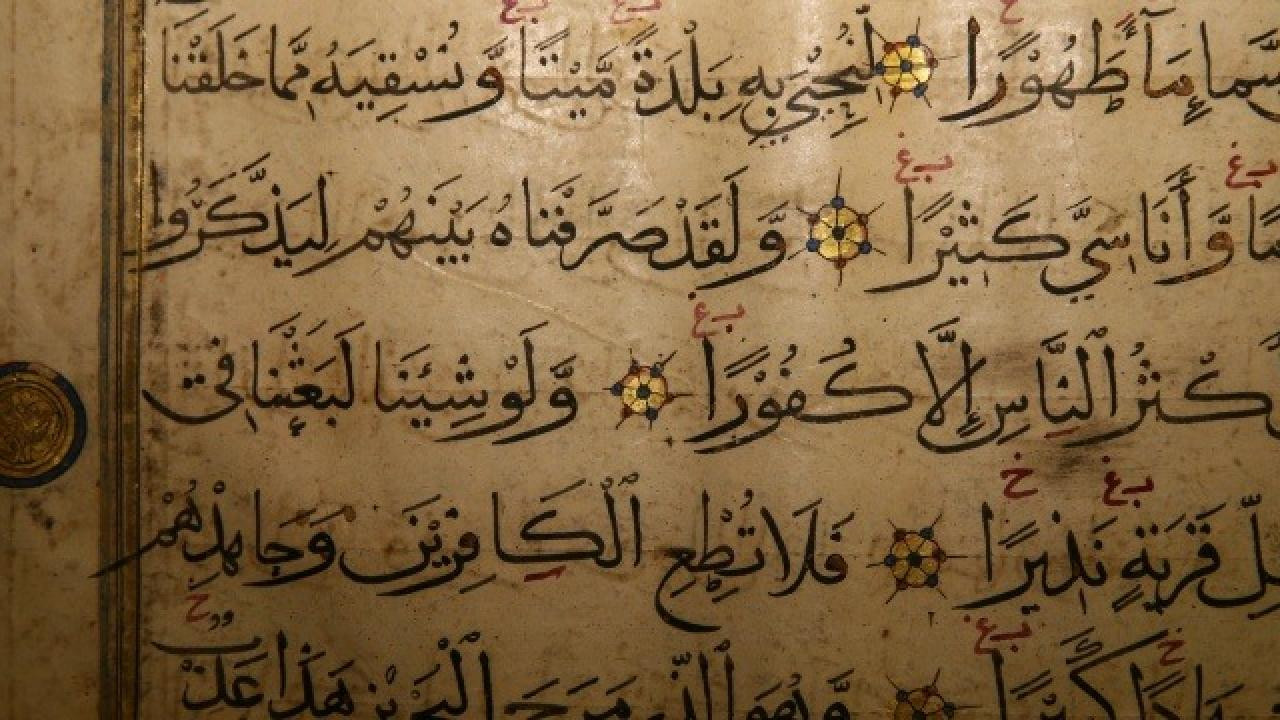 سَّمآءِ مَآءً طَهُوْرًا لِنُحْيِيَ بِهِ بَلْدَةً مَّيْتًا وَّنُسْقِيَهُ مِمَّا خَلَقْنَا
وَّأَنَاسِيَّ كَثِيْرًا وَّلَقَدْ صَرَّفْنَاهُ بَيْنَهُمْ لِيَذَّكَّرُوا
كْثَرُ ٱلنَّاسِ إِلَّا كُفُوْرًا وَّلَوْ شِئْنَا لَبَعَثْنَا فِي
لِّ قَرْيَةٍ نَذِيرًا فَلَا تُطِعِ ٱلْكَافِرِيْنَ وَجَاهِدْهُمْ
كَبِيْرًا وَّهُوَ ٱلَّذِي مَرَجَ ٱلْبَحْرَيْنِ هَذَا عَذْبٌ